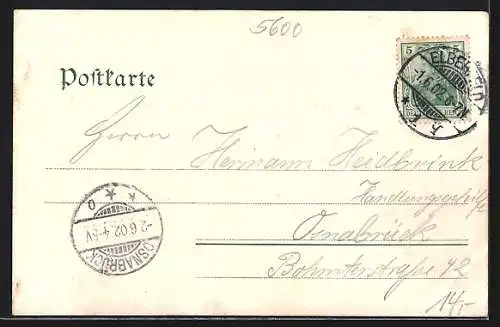 5600
5 5
ELBERFELD
-1.6.02
Postkarte
Herrn
Hermann Heidbrink
Handlungsgehilfe
Osnabrück
Bohmterstrasse 42
14,-
OSNABRÜCK
-2.6.02.4-5V
* * O